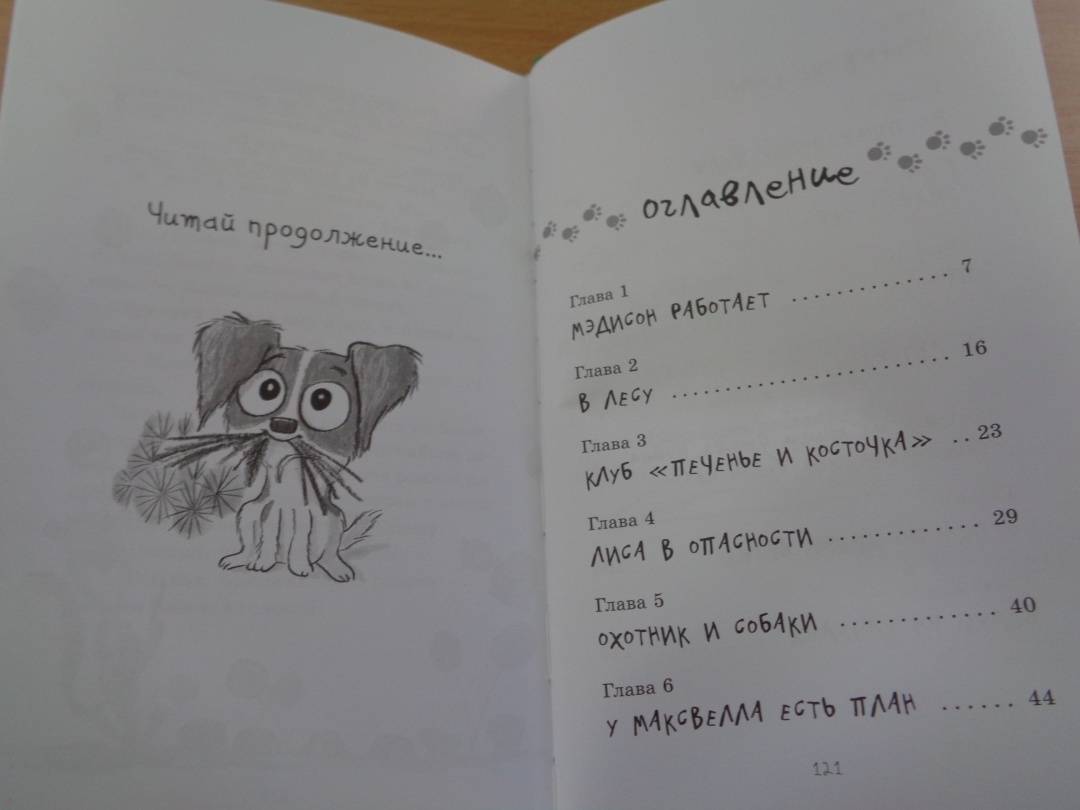 Читай продолжение...
оглавление
Глава 1
МЭДИСОН РАБОТАЕТ .............. 7
Глава 2
В ЛЕСУ ........................ 16
Глава 3
КЛУБ «ПЕЧЕНЬЕ И КОСТОЧКА» .. 23
Глава 4
ЛИСА В ОПАСНОСТИ ............. 29
Глава 5
ОХОТНИК И СОБАКИ ............. 40
Глава 6
У МАКСВЕЛЛА ЕСТЬ ПЛАН ...... 44
121